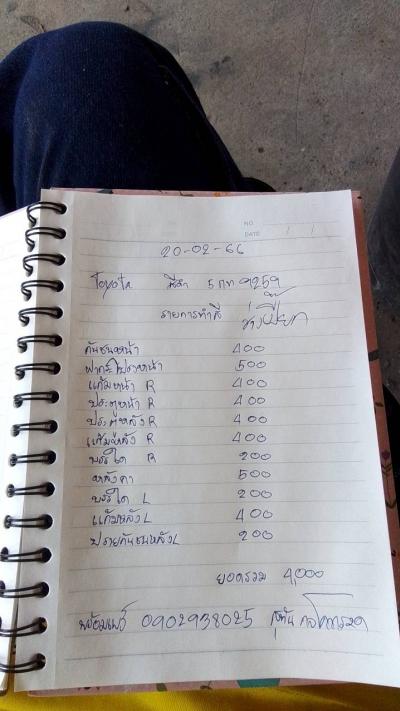 NO.
DATE / /
20-02-66
Toyota สีดำ 5 กท 9259
รายการทำสี ช่างเปี๊ยก
กันชนหน้า 400
ฝากระโปรงหน้า 500
แก้มหน้า R 400
ประตูหน้า R 400
ประตูหลัง R 400
แก้มหลัง R 400
บรรได R 200
หลังคา 500
บรรได L 200
แก้มหลัง L 400
ปรายกันชนหลัง L 200
ยอดรวม 4,000
พร้อมเพร์ 0902938025